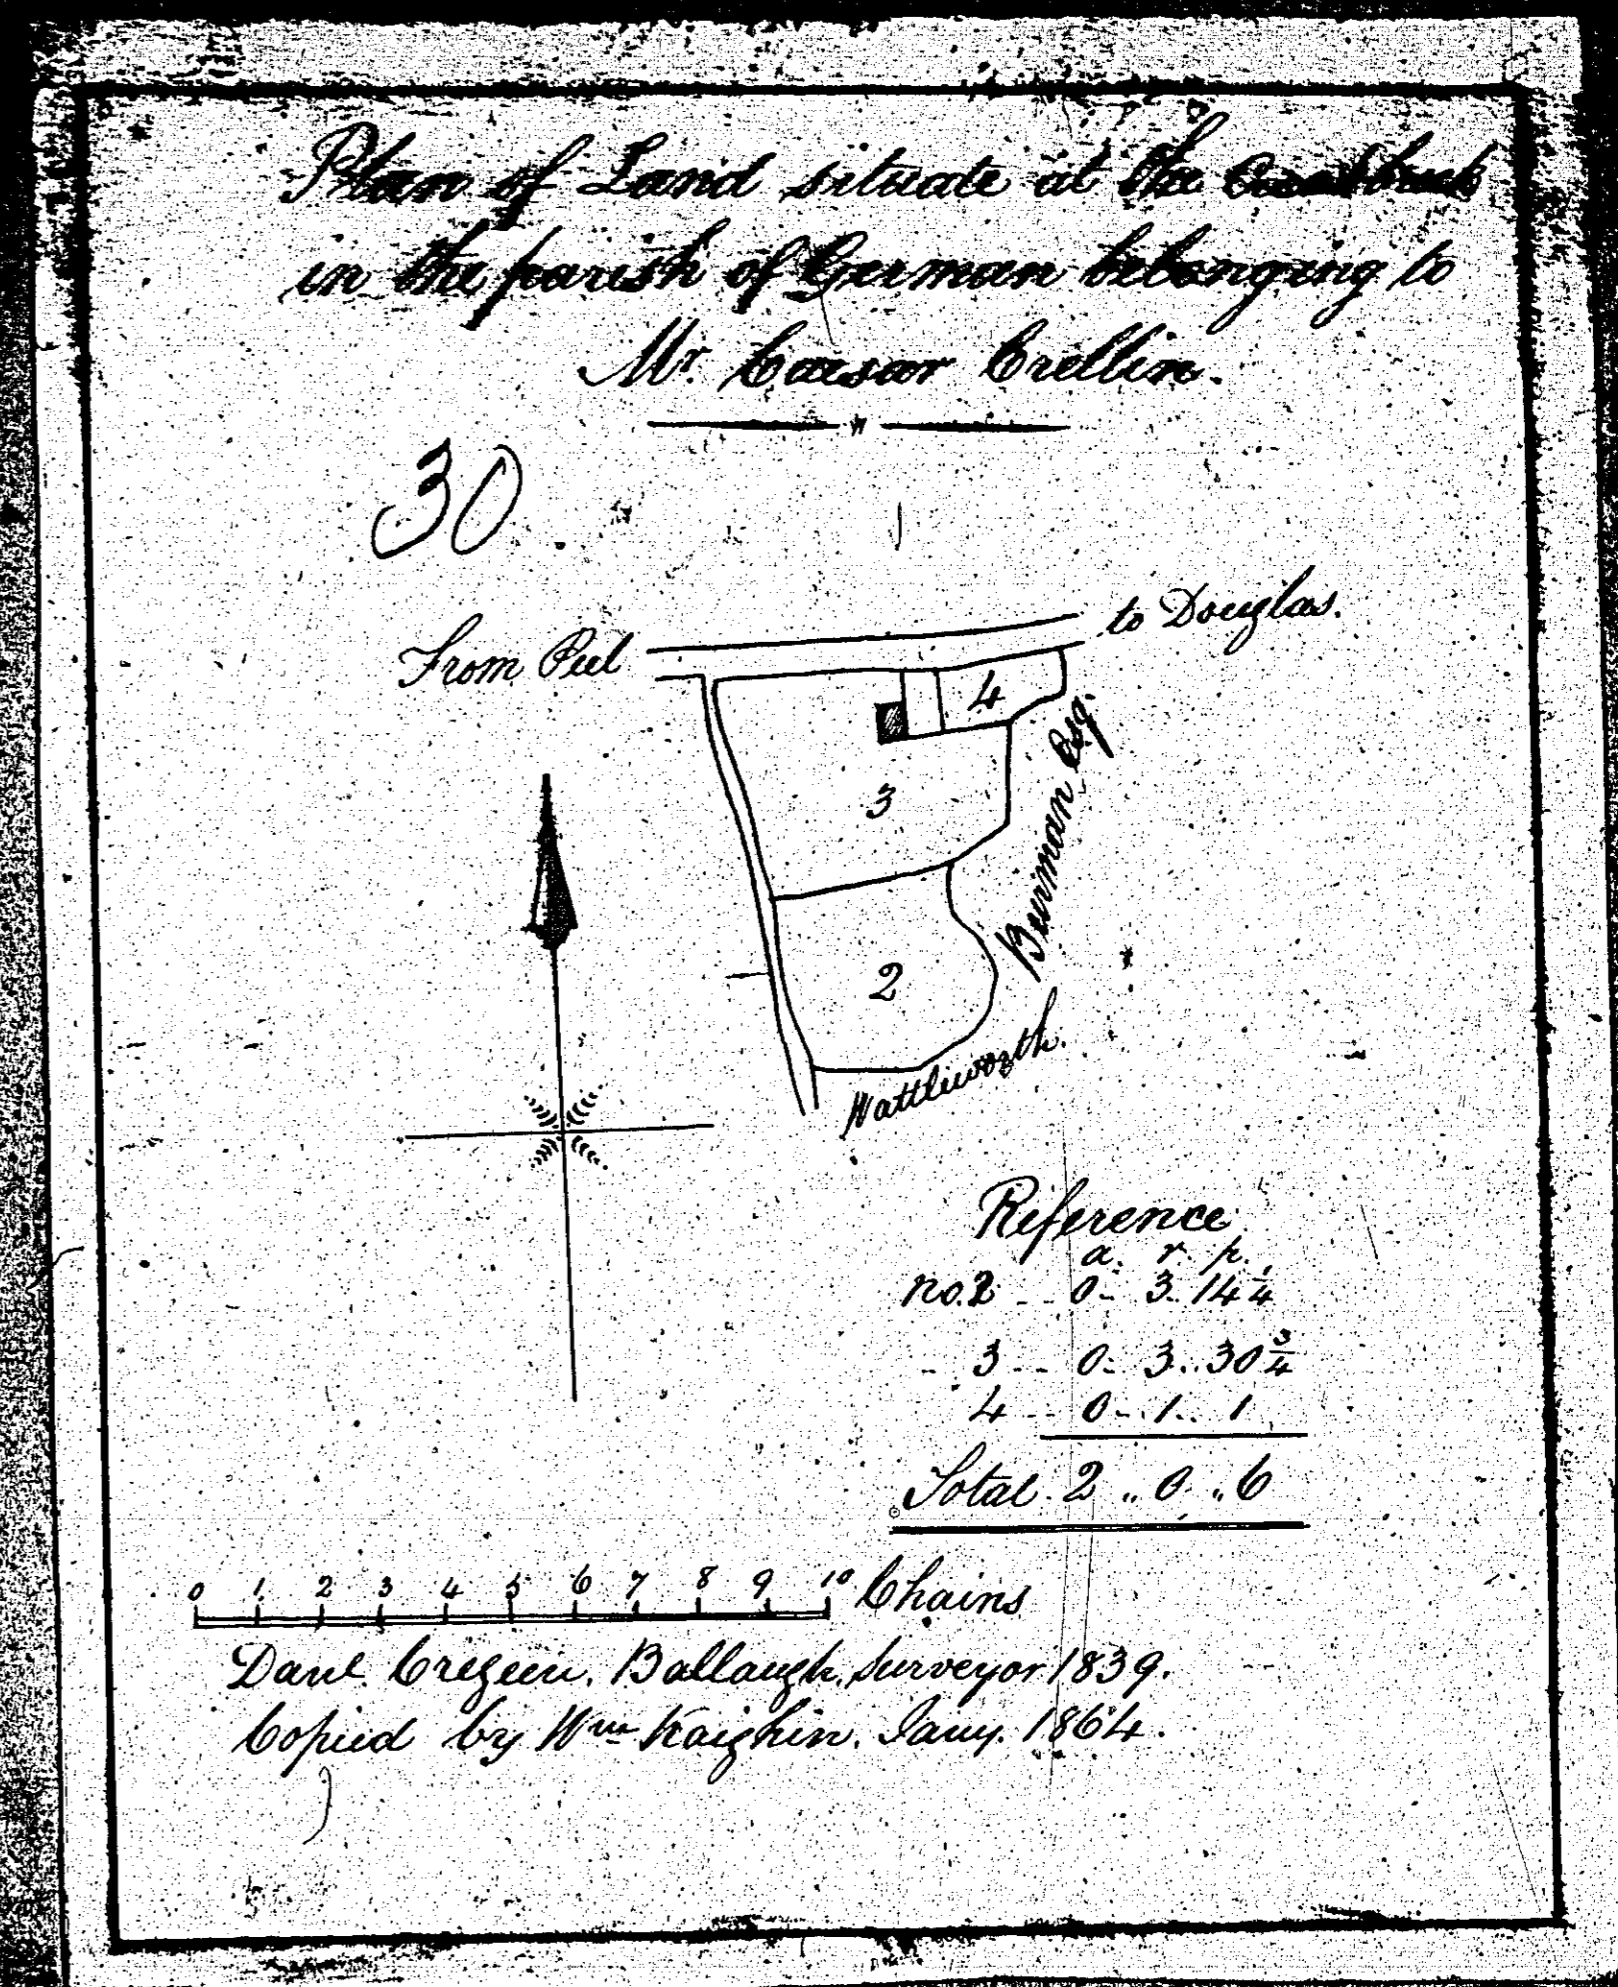 Plan of Land situate at the
in the parish of German belonging to
Mr. Caesar Crellin.
30
From Peel
to Douglas.
4
3
2
Burman Esq.
Wattleworth.
Reference
a. r. p.
No. 2 - - 0 - 3 - 14 1/4
- 3 - - 0 - 3 .. 30 3/4
4 - - 0 - 1 .. 1
Total 2 .. 0 .. 6
0 1 2 3 4 5 6 7 8 9 10 Chains
Danl. Cregeen. Ballaugh. Surveyor 1839.
Copied by Wm Kaighin. Jany. 1864.